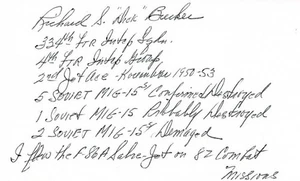 Richard S. "Dick" Becker
334th Ftr Intcp Sqdn.
4th Ftr Intcp Group
2nd Jet Ace - Korean War 1950-53
5 SOVIET MIG-15s Confirmed Destroyed
1 SOVIET MIG-15 Probably Destroyed
2 SOVIET MIG-15s Damaged
I flew the F-86A Sabre-Jet on 82 Combat
Missions